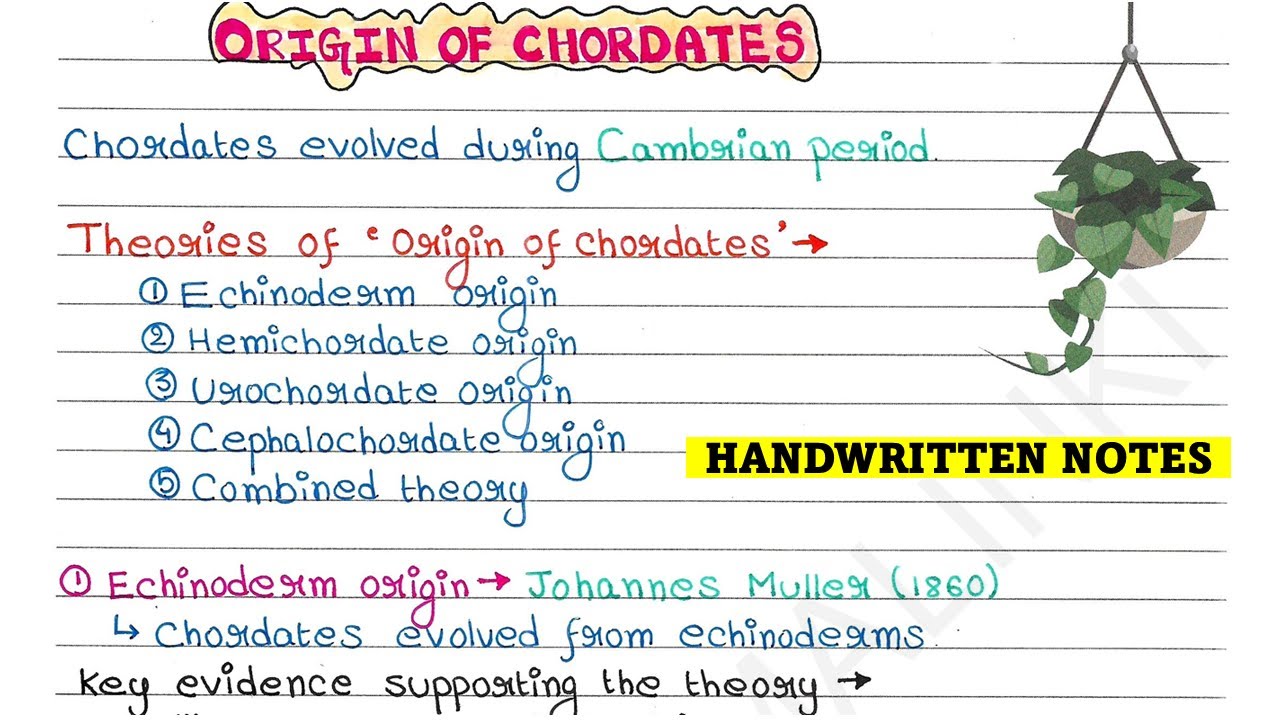 ORIGIN OF CHORDATES
Chordates evolved during Cambrian period.
Theories of 'Origin of chordates' →
① Echinoderm origin
② Hemichordate origin
③ Urochordate origin
④ Cephalochordate origin
HANDWRITTEN NOTES
⑤ Combined theory
① Echinoderm origin → Johannes Muller (1860)
↳ Chordates evolved from echinoderms.
Key evidence supporting the theory →